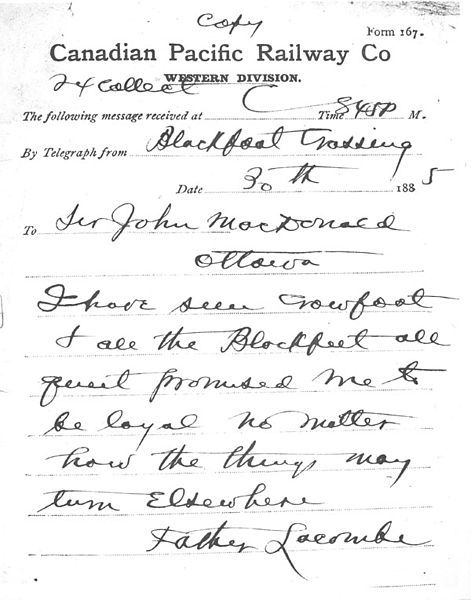 Copy
Form 167.
Canadian Pacific Railway Co
24 Collect WESTERN DIVISION.
The following message received at C Time 845P M.
By Telegraph from Blackfoot Crossing
Date 30th 1885
To Sir John MacDonald
Ottawa
I have seen Crowfoot
& all the Blackfeet all
queit promised me to
be loyal no matter
how the things may
turn Elsewhere
Father Lacombe